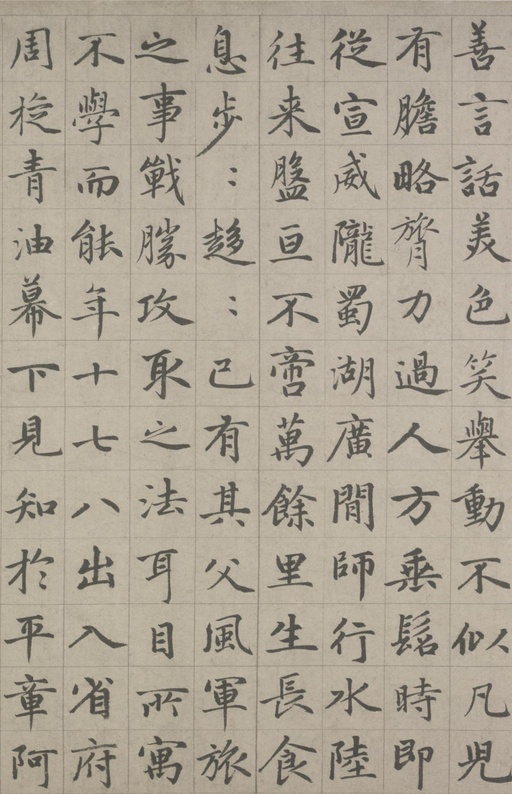 善言話美色笑舉動不似凡児
有膽略膂力過人方乗髫時即
從宣威隴蜀湖廣間師行水陸
往来盤亘不啻萬餘里生長食
息步：趍：已有其父風軍旅
之事戰勝攻取之法耳目所寓
不學而能年十七八出入省府
周旋青油幕下見知於平章阿